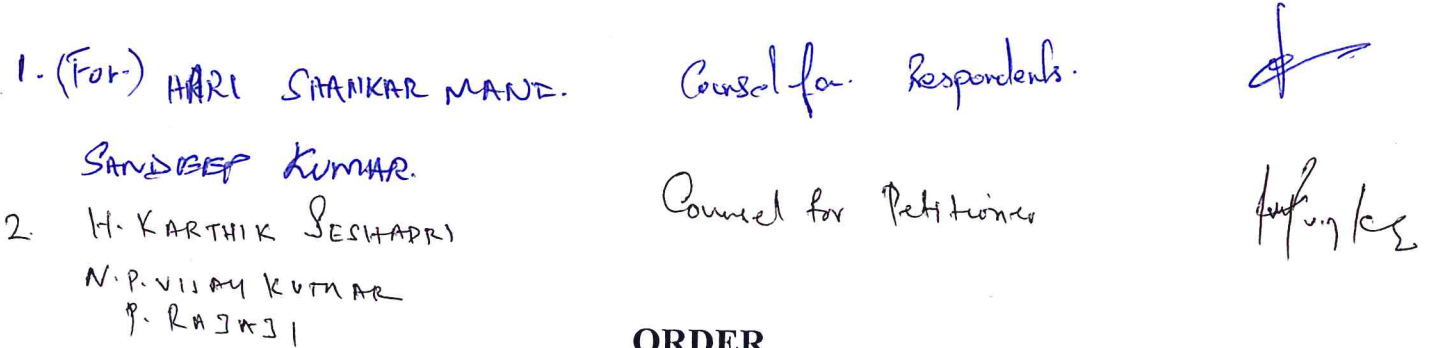 1. (For) HARI SHANKAR MANI. Counsel for Respondents.
SANDEEP KUMAR.
2. H. KARTHIK SESHADRI Counsel for Petitioner
N.P. VIJAY KUMAR
P. RAJAJI
ORDER